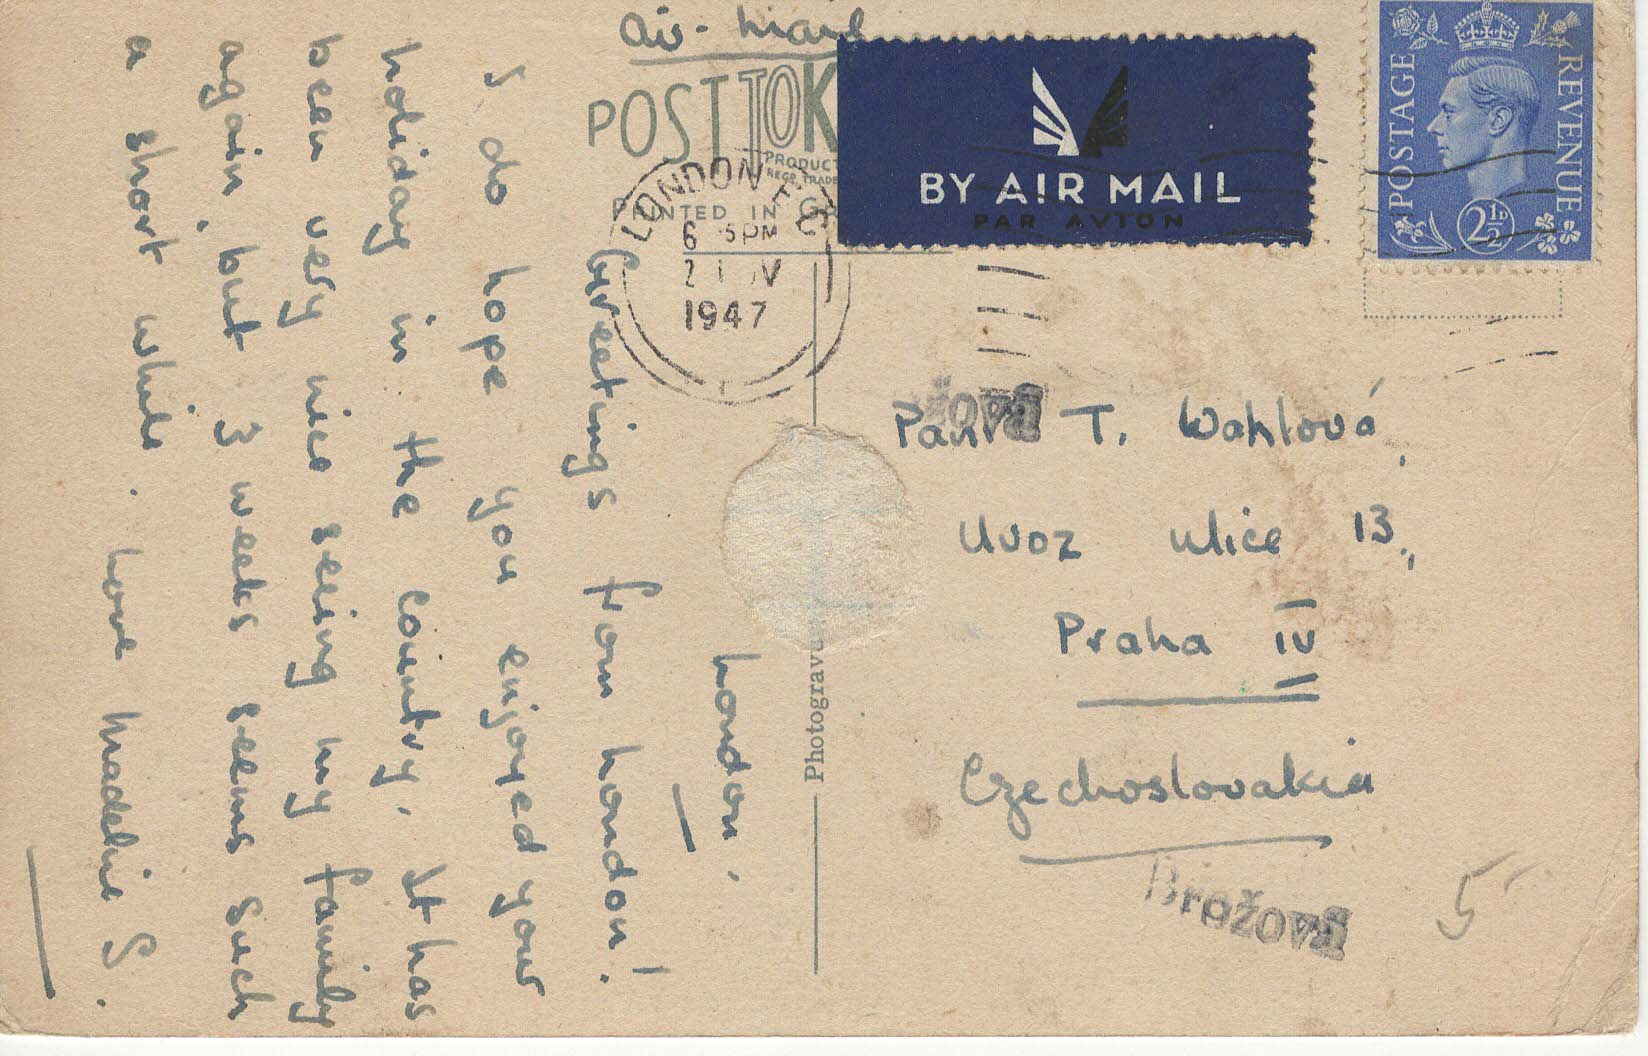 Air-Mail
POST TOK
PRODUCT
REGD. TRADE
PRINTED IN
BY AIR MAIL
PAR AVION
POSTAGE
REVENUE
2½D
LONDON
6 PM
1947
London.
Greetings from London!
I do hope you enjoyed your
holiday in the country. It has
been very nice seeing my family
again, but 3 weeks seems such
a short while. Love
T. Wahlová,
Uvoz ulice 13.,
Praha IV
Czechoslovakia
Brožová
5
Photogravu